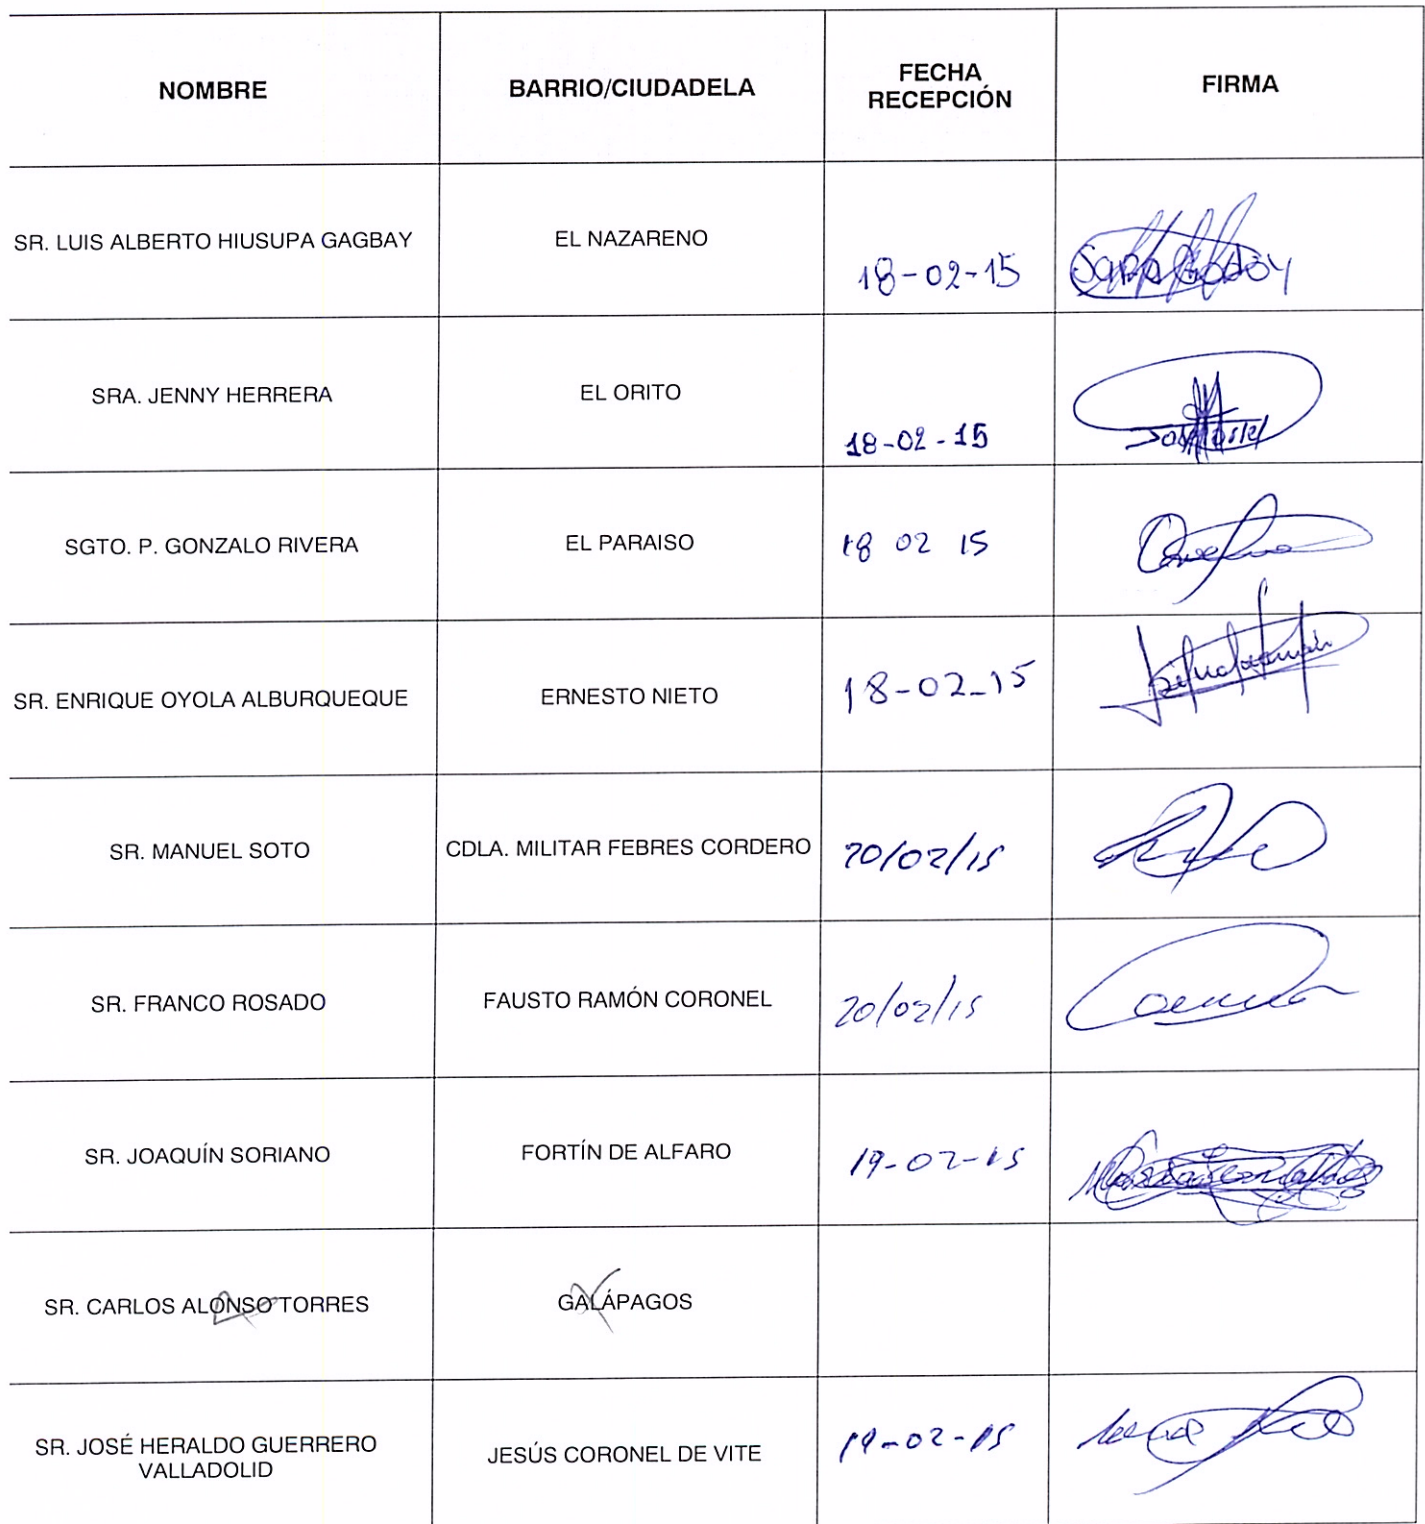 NOMBRE BARRIO/CIUDADELA FECHA RECEPCIÓN FIRMA
SR. LUIS ALBERTO HIUSUPA GAGBAY EL NAZARENO 18-02-15
SRA. JENNY HERRERA EL ORITO 18-02-15
SGTO. P. GONZALO RIVERA EL PARAISO 18 02 15
SR. ENRIQUE OYOLA ALBURQUEQUE ERNESTO NIETO 18-02-15
SR. MANUEL SOTO CDLA. MILITAR FEBRES CORDERO 20/02/15
SR. FRANCO ROSADO FAUSTO RAMÓN CORONEL 20/02/15
SR. JOAQUÍN SORIANO FORTÍN DE ALFARO 19-02-15
SR. CARLOS ALONSO TORRES GALÁPAGOS
SR. JOSÉ HERALDO GUERRERO
VALLADOLID JESÚS CORONEL DE VITE 19-02-15